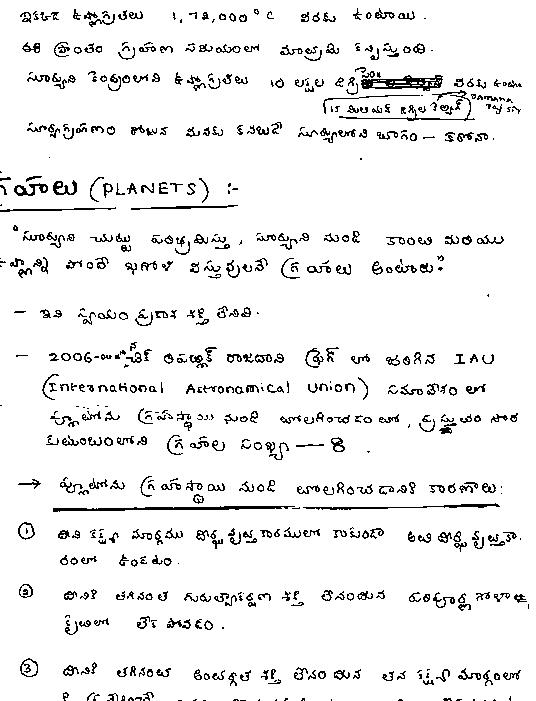 ఇక్కడ ఉష్ణోగ్రతలు 1,72,000°C వరకు ఉంటాయి.
ఈ ప్రాంతం గ్రహణ సమయంలో మాత్రమే కన్పిస్తుంది.
సూర్యుని కేంద్రంలోని ఉష్ణోగ్రతలు 10 లక్షల డిగ్రీ వరకు
15 మిలియన్ డిగ్రీల కెల్విన్
సూర్యగ్రహణం రోజున మనకు కనబడే సూర్యునిలోని భాగం - కరోనా.
గ్రహాలు (PLANETS) :-
"సూర్యుని చుట్టు పరిభ్రమిస్తు, సూర్యుని నుండి కాంతి మరియు
ఉష్ణాన్ని పొందే ఖగోళ వస్తువులనే గ్రహాలు అంటారు."
- ఇవి స్వయం ప్రకాశ శక్తి లేనివి.
- 2006-లో చెక్ రిపబ్లిక్ రాజధాని ప్రేగ్ లో జరిగిన IAU
(International Astronomical Union) సమావేశం లో
ప్లూటోను గ్రహస్థాయి నుండి తొలగించడం తో, ప్రస్తుతం సౌర
కుటుంబంలోని గ్రహాల సంఖ్య — 8.
→ ప్లూటోను గ్రహస్థాయి నుండి తొలగించడానికి కారణాలు:
① దీని కక్ష్యా మార్గము దీర్ఘ వృత్తాకారములో కాకుండా అతి దీర్ఘ వృత్తాకా
రంలో ఉండటం.
② దీనికి తగినంత గురుత్వాకర్షణ శక్తి లేనందున పరిపూర్ణ గోళా
స్థితిలో లేక పోవడం.
③ దీనికి తగినంత అంతర్గత శక్తి లేనందున తన కక్ష్యా మార్గంలో